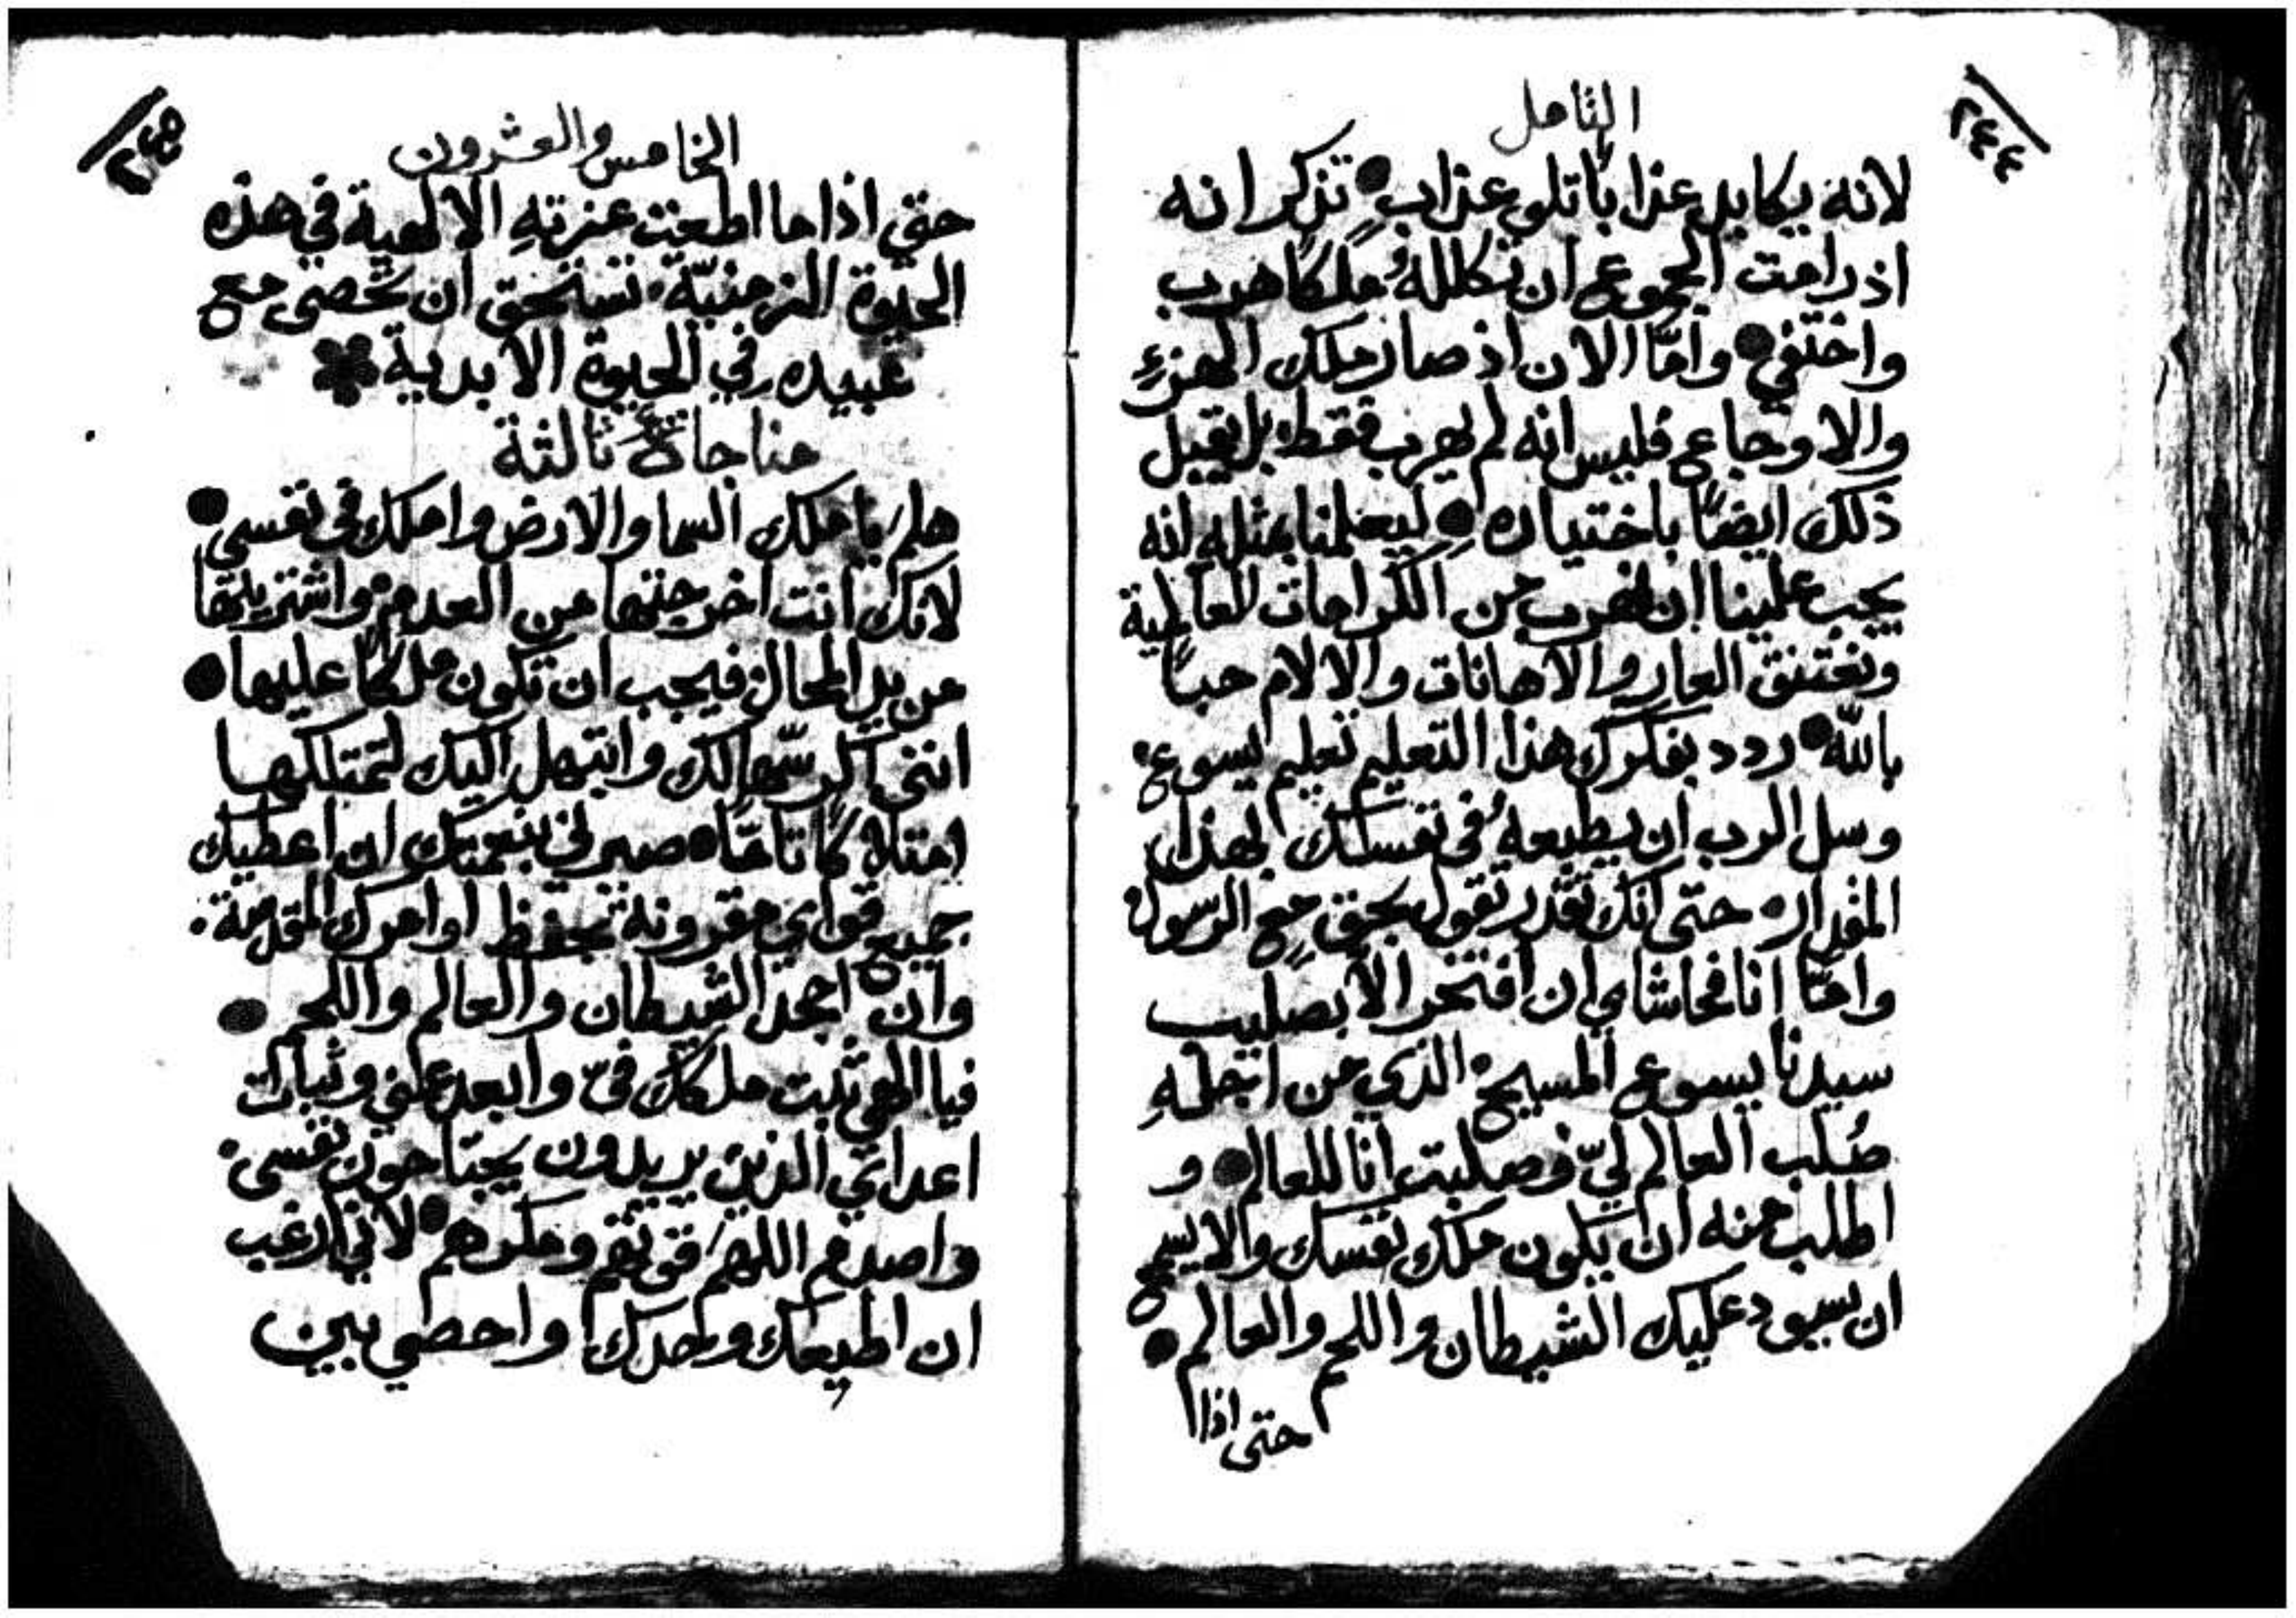 ٢٤٤
التامل
لانه يكابد عذابا تلو عذاب • تذكر انه
اذ رامت الجموع ان تكللهُ ملكًا هرب
واختفى • وامّا الان اذ صار ملك الهزءِ
والاوجاع فليس انه لم يهرب فقط بل يقبل
ذلك ايضًا باختياره • ليعلمنا بمثلهِ انه
يجب علينا ان نهرب من الكرامات العالمية
ونعتنق العار والاهانات والالام حبًا
بالله • ردد بفكرك هذا التعليم تعليم يسوع •
وسل الرب ان يطبعهُ في نفسك بهذا
المقدار • حتى انك تقدر تقول بحق مع الرسول •
وامّا انا فحاشاي ان افتخر الا بصليب
سيدنا يسوع المسيح • الذي من اجلهِ
صُلب العالم ليّ وصلبت انا للعالم • و
اطلب منه ان يكون ملك نفسك والا يسمح
ان يسود عليك الشيطان واللحم والعالم •
حتى اذا
٢٤٥
الخامس والعشرون
حتى اذا ما اطعت عزتهِ الالهية في هذه
الحيوة الزمنيّة • تستحق ان تحصى مع
عبيده في الحيوة الابدية
مناجاة ثالثة
هلم يا ملك السما والارض واملك في نفسي •
لانك انت اخرجتها من العدم • واشتريتها
من يد المحال • فيجب ان تكون ملكًا عليها •
انني اكرسّها لك وابتهل اليك لتمتلكها
امتلاكًا تامًّا • صيرني بنعمتك ان اعطيك
جميع قواي مقرونة بحفظ اوامرك المقدسة •
وان اجحد الشيطان والعالم واللحم •
فيا الهي ثبت ملكك فيّ وابعد عني وثبات
اعداي الذين يريدون يجتاحون نفسي •
واصدم اللهم قوتهم ومكرهم • لاني ارغب
ان اطيعك وحدك واحصي بين